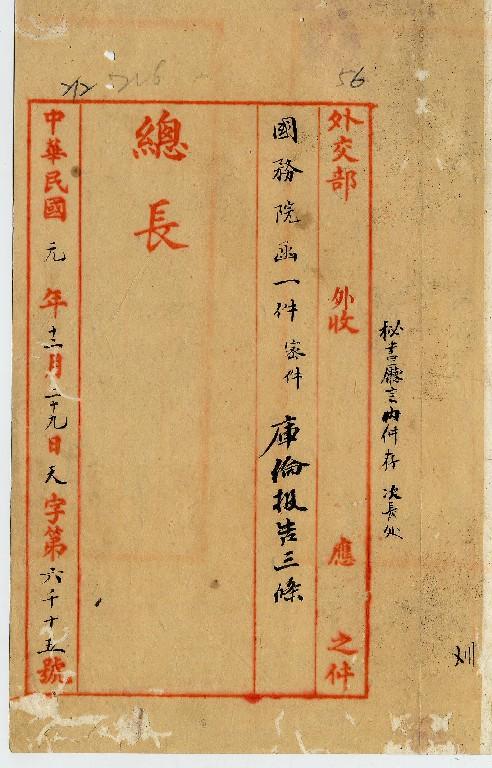 56
秘書廳言內件存次長處
外交部 外收 應 之件
國務院函一件 密件 庫倫报告三條
總長
中華民國元年十二月二十九日天字第六千十五號